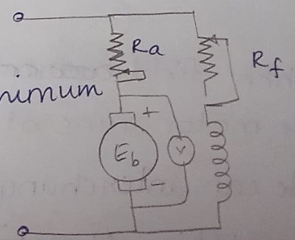 Ra
Rf
nimum
+
Eb
V
-